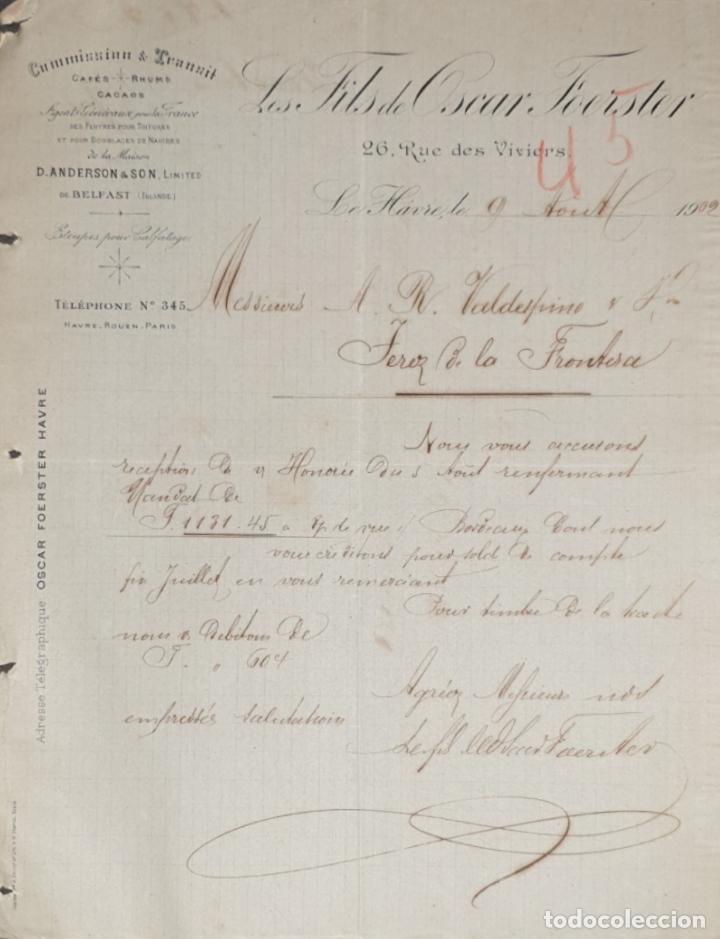 Commission & Transit
CAFÉS RHUMS
CACAOS
Agents Généraux pour la France
DES FEUTRES POUR TOITURES
ET POUR DOUBLAGES DE NAVIRES
de la Maison
D. ANDERSON & SON, LIMITED
DE BELFAST (IRLANDE)
Etoupes pour Calfatage
TÉLÉPHONE Nº 345
HAVRE. ROUEN. PARIS
Adresse Télégraphique OSCAR FOERSTER HAVRE
Les Fils de Oscar Foerster
26, Rue des Viviers.
45
Le Hâvre, le 9 Août 1902
Messieurs A. R. Valdespino & Hno
Jerez de la Frontera
Nous vous accusons
reception de v Honorée du 5 Août renfermant
Mandat de
F. 1131.45 a 8/j de vue s/ Bordeaux dont nous
vous créditons pour sold de compte
fin Juillet en vous remerciant
Pour timbre de la traite
nous v. debitons de
F. " 60 cs
Agréez Messieurs nos
empressés salutations
Les fils de Oscar Foerster
todocoleccion